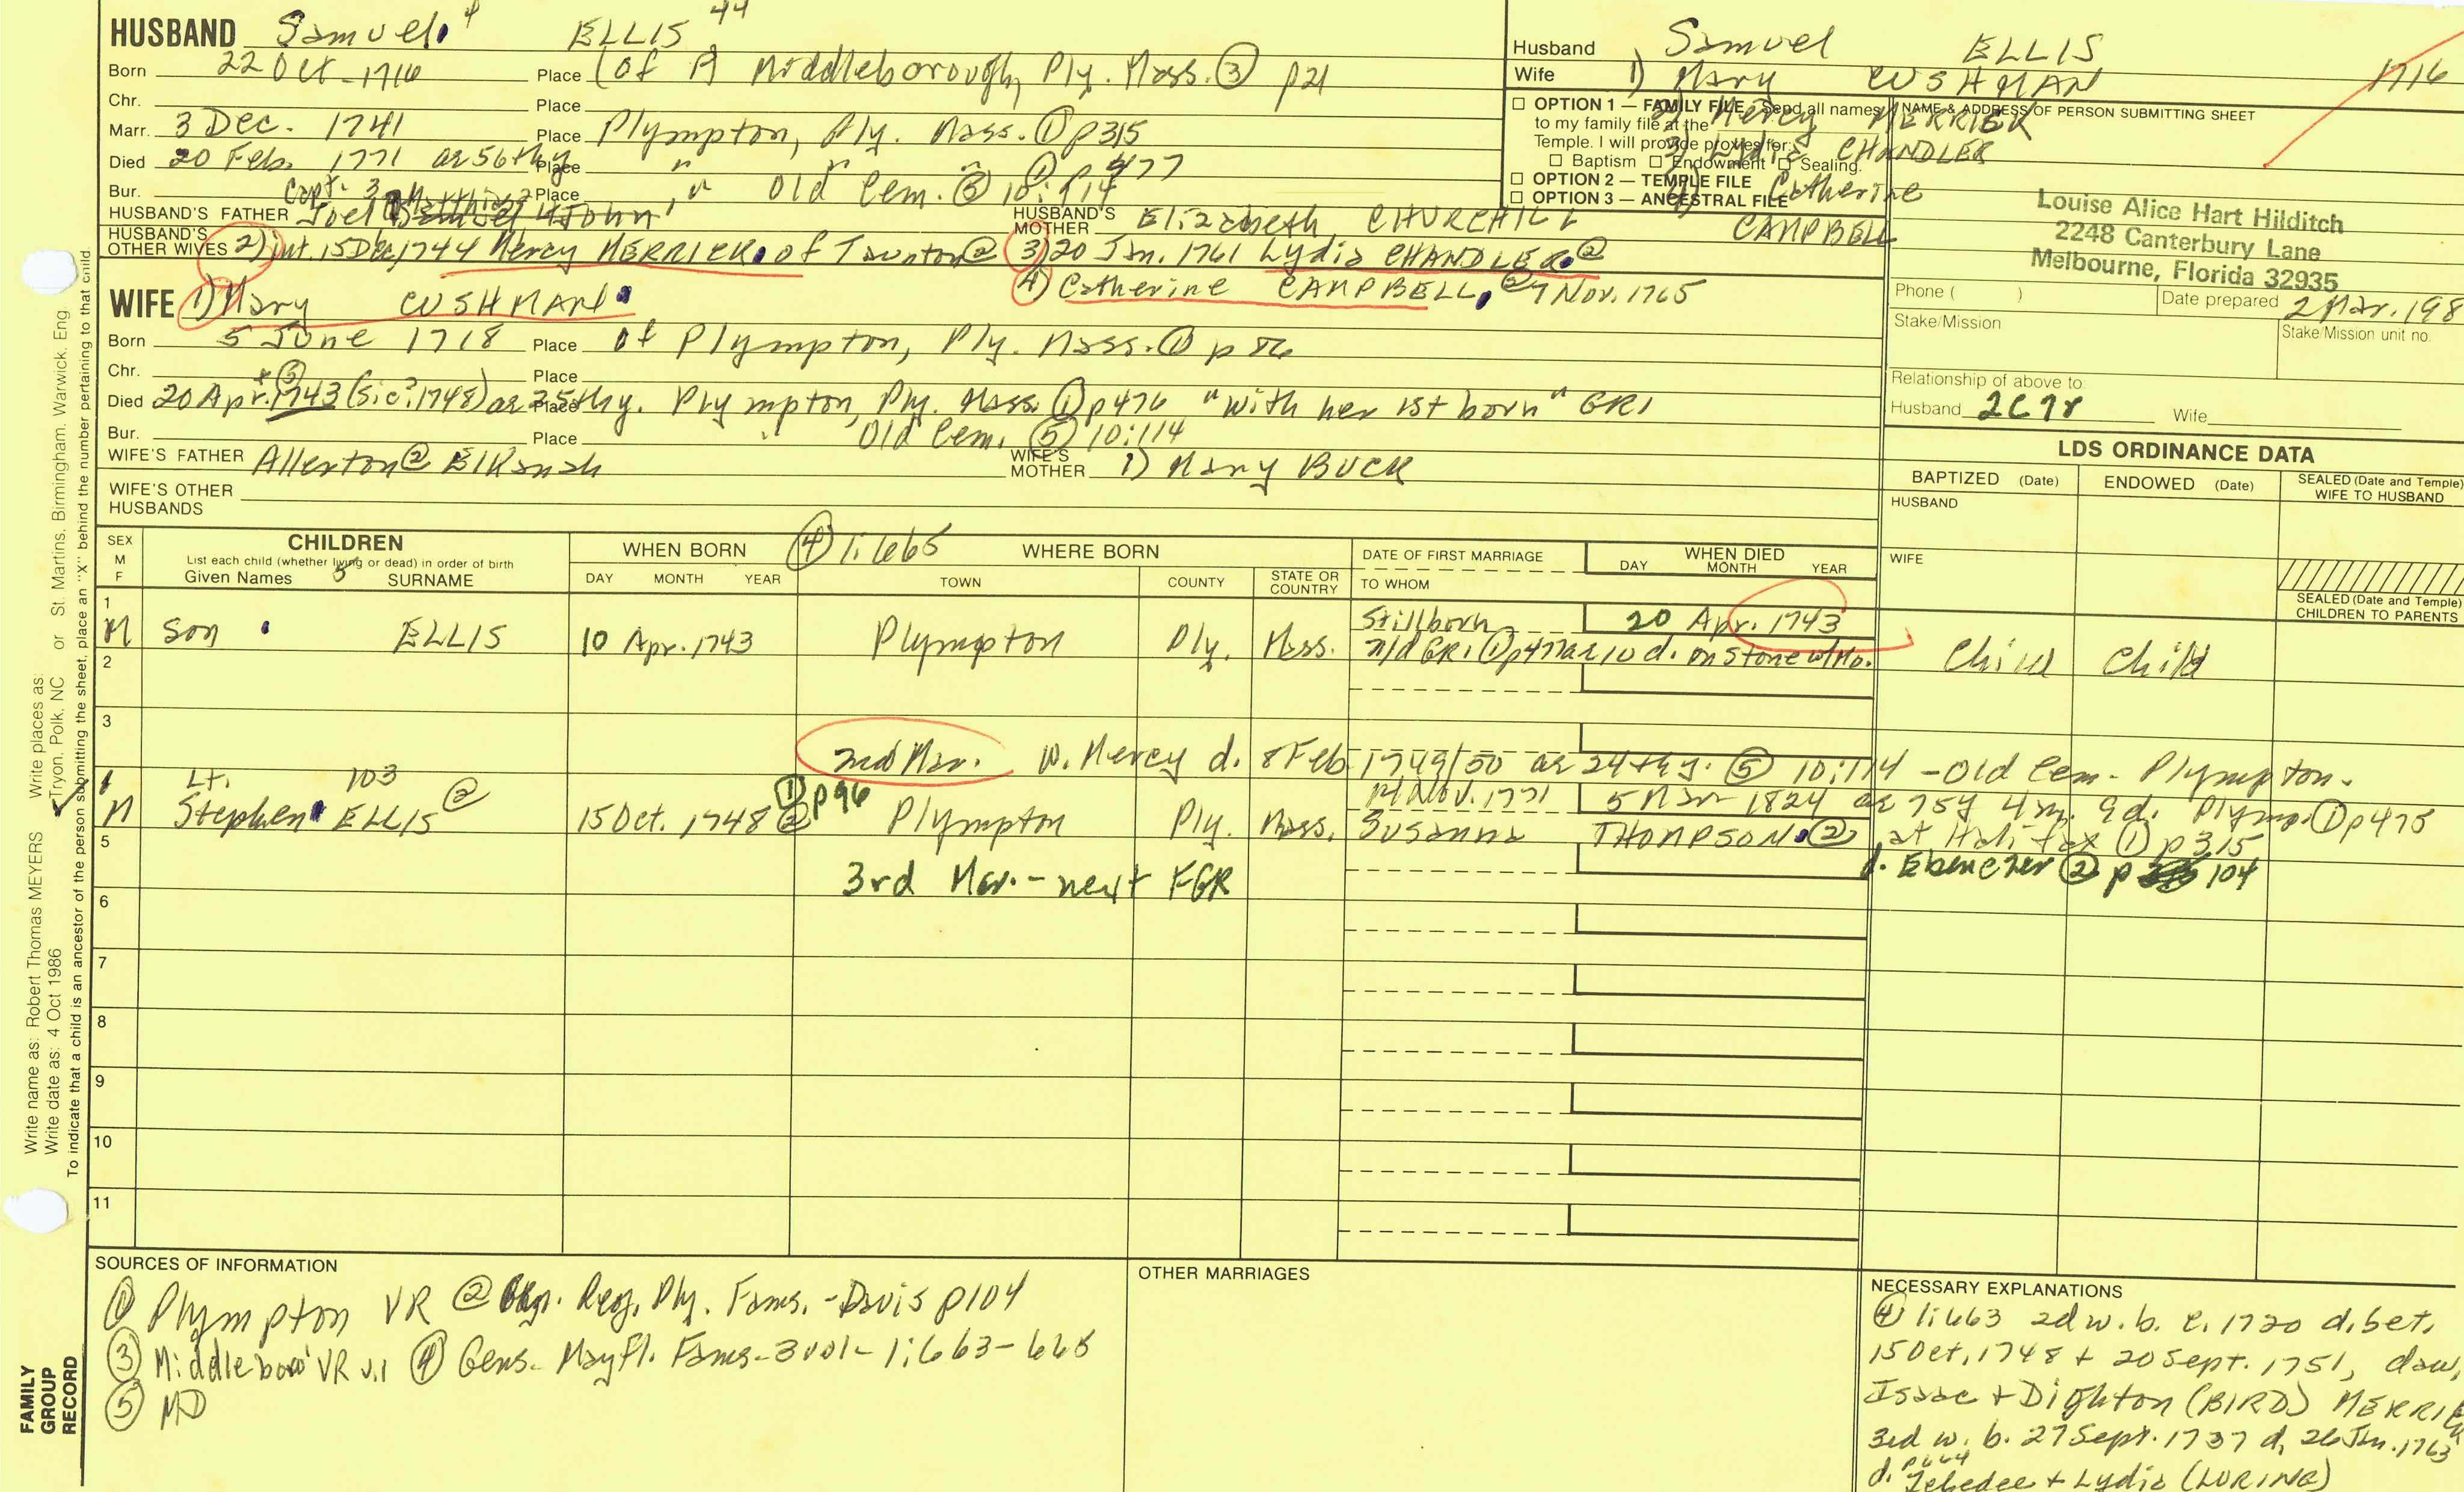 HUSBAND Samuel ELLIS 44
Born 22 Oct - 1716 Place (of Middleborough, Ply. Mass. ③ p21
Chr. Place
Marr. 3 Dec. 1741 Place Plympton, Ply. Mass. ① p315
Died 20 Feb. 1771 ae 56thy Place " " " ① p 477
Bur. Place " Old Cem. ⑤ 10:114
Capt. 3
HUSBAND'S FATHER Joel John HUSBAND'S MOTHER Elizabeth CHURCHILL
HUSBAND'S OTHER WIVES 2) int. 15 Dec 1744 Mercy MERRICK of Taunton ② 3) 20 Jan. 1761 Lydia CHANDLER ②
4) Catherine CAMPBELL, ② 7 Nov. 1765
WIFE 1) Mary CUSHMAN
Born 5 June 1718 Place of Plympton, Ply. Mass. ① p 86
Chr. Place
Died 20 Apr. 1743 (sic? 1748) ae 25thy. Place Plympton, Ply. Mass ① p476 "with her 1st born" GR1
Bur. Place Old Cem. ⑤ 10:114
WIFE'S FATHER Allerton ② Elkanah WIFE'S MOTHER 1) Mary BUCK
WIFE'S OTHER HUSBANDS
Husband Samuel ELLIS 1716
Wife 1) Mary CUSHMAN
2) Mercy MERRICK
3) Lydia CHANDLER
4) Catherine CAMPBELL
□ OPTION 1 — FAMILY FILE Send all names
to my family file at the
Temple. I will provide proxies for:
□ Baptism □ Endowment □ Sealing.
□ OPTION 2 — TEMPLE FILE
□ OPTION 3 — ANCESTRAL FILE
NAME & ADDRESS OF PERSON SUBMITTING SHEET
Louise Alice Hart Hilditch
2248 Canterbury Lane
Melbourne, Florida 32935
Phone ( ) Date prepared 2 Mar. 198
Stake/Mission Stake/Mission unit no.
Relationship of above to:
Husband 2C7r Wife
LDS ORDINANCE DATA
BAPTIZED (Date) ENDOWED (Date) SEALED (Date and Temple) WIFE TO HUSBAND
HUSBAND
WIFE
SEALED (Date and Temple) CHILDREN TO PARENTS
SEX M F CHILDREN WHEN BORN ④ 1:665 WHERE BORN DATE OF FIRST MARRIAGE WHEN DIED
List each child (whether living or dead) in order of birth
Given Names 5 SURNAME DAY MONTH YEAR TOWN COUNTY STATE OR COUNTRY TO WHOM DAY MONTH YEAR
1 M Son ELLIS 10 Apr. 1743 Plympton Ply. Mass. Stillborn 20 Apr. 1743 Child Child
n/d GR1 ① p477 ae 10 d. on stone w/Mo.
2
3
2nd Mar. W. Mercy d. 8 Feb 1749/50 ae 24thy. ⑤ 10:114 - Old Cem. Plympton.
Lt. 103
M Stephen ELLIS ② 15 Oct. 1748 ② ① p96 Plympton Ply. Mass. 14 Nov. 1771 5 Mar 1824 ae 75y 4m. 9d. Plymp. ① p475
Susanna THOMPSON ② at Halifax ① p315
d. Ebenezer ② p 104
5
3rd Mar. - next FGR
6
7
8
9
10
11
SOURCES OF INFORMATION
① Plympton VR ② Reg. Ply. Fams. - Davis p104
③ Middleboro VR v.1 ④ Gens. Mayfl. Fams - 3 vol - 1:663-668
⑤ MD
OTHER MARRIAGES
NECESSARY EXPLANATIONS
④ 1:663 2d w. b. c. 1720 d. bet.
15 Oct. 1748 + 20 Sept. 1751, dau,
Isaac + Dighton (BIRD) MERRICK
3rd w. b. 27 Sept. 1737 d. 26 Jan. 1763
p664
d. Zebedee + Lydia (LORING)
Write name as: Robert Thomas MEYERS Write places as: Tryon, Polk, NC or St. Martins, Birmingham, Warwick, Eng.
Write date as: 4 Oct 1986
To indicate that a child is an ancestor of the person submitting the sheet, place an "X" behind the number pertaining to that child.
FAMILY
GROUP
RECORD